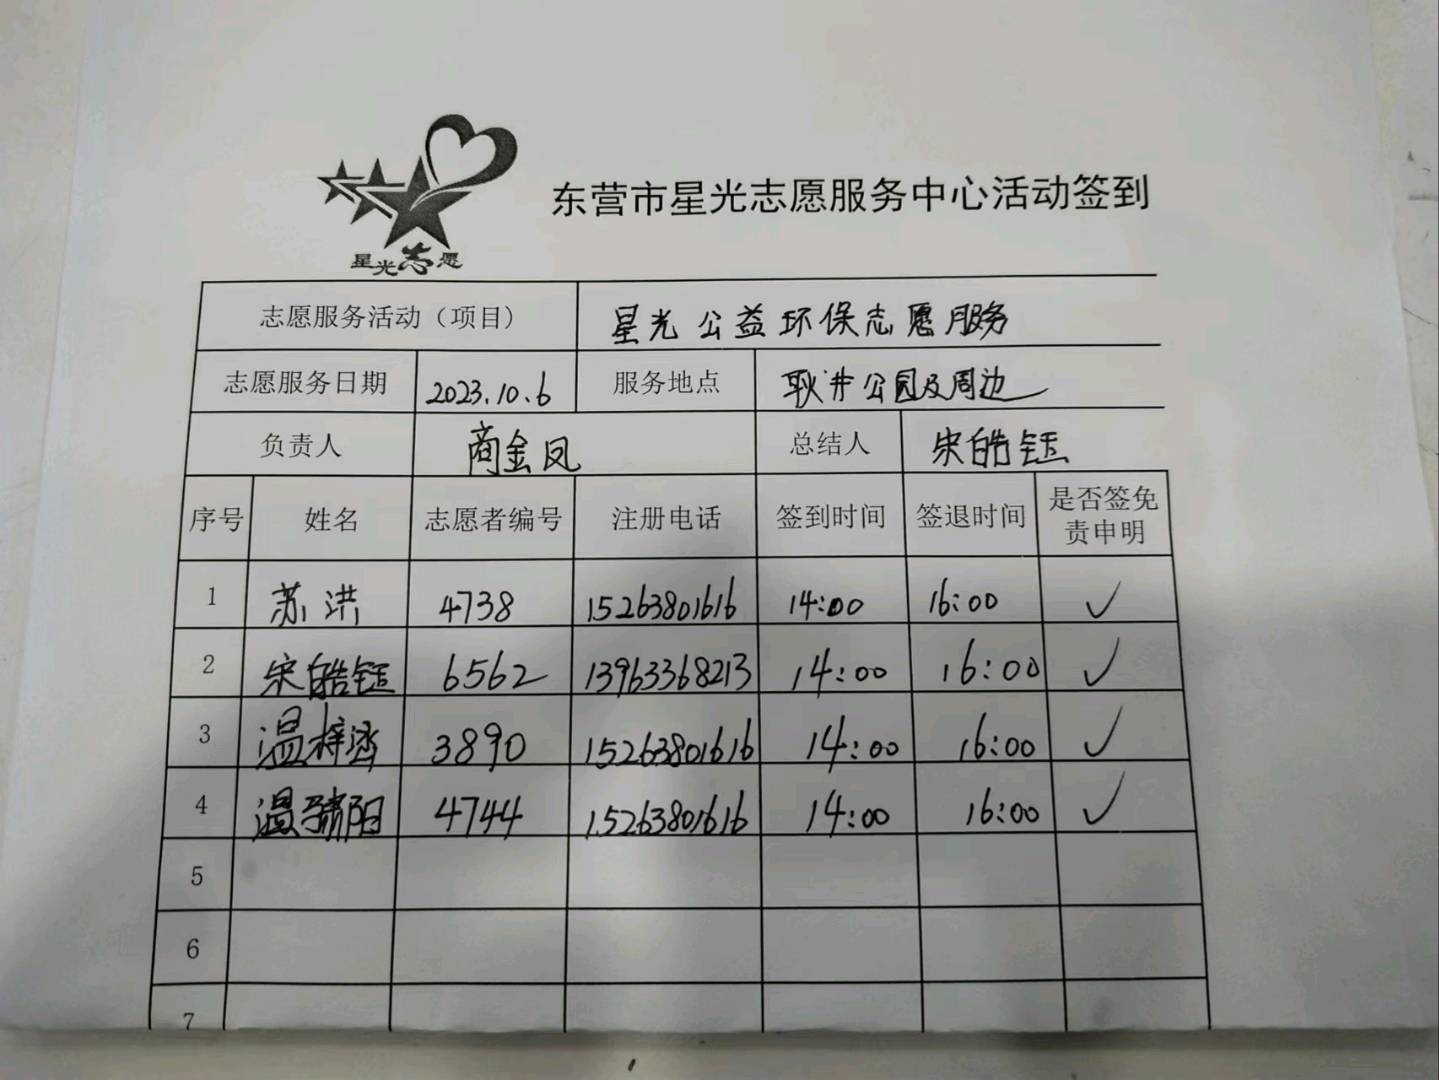 星光志愿
东营市星光志愿服务中心活动签到
志愿服务活动（项目） 星光公益环保志愿服务
志愿服务日期 2023.10.6 服务地点 耿井公园及周边
负责人 商金凤 总结人 宋皓钰
序号 姓名 志愿者编号 注册电话 签到时间 签退时间 是否签免
责申明
1 苏洪 4738 15263801616 14:00 16:00 ✓
2 宋皓钰 6562 13963368213 14:00 16:00 ✓
3 温梓涵 3890 15263801616 14:00 16:00 ✓
4 温 阳 4744 15263801616 14:00 16:00 ✓
5
6
7